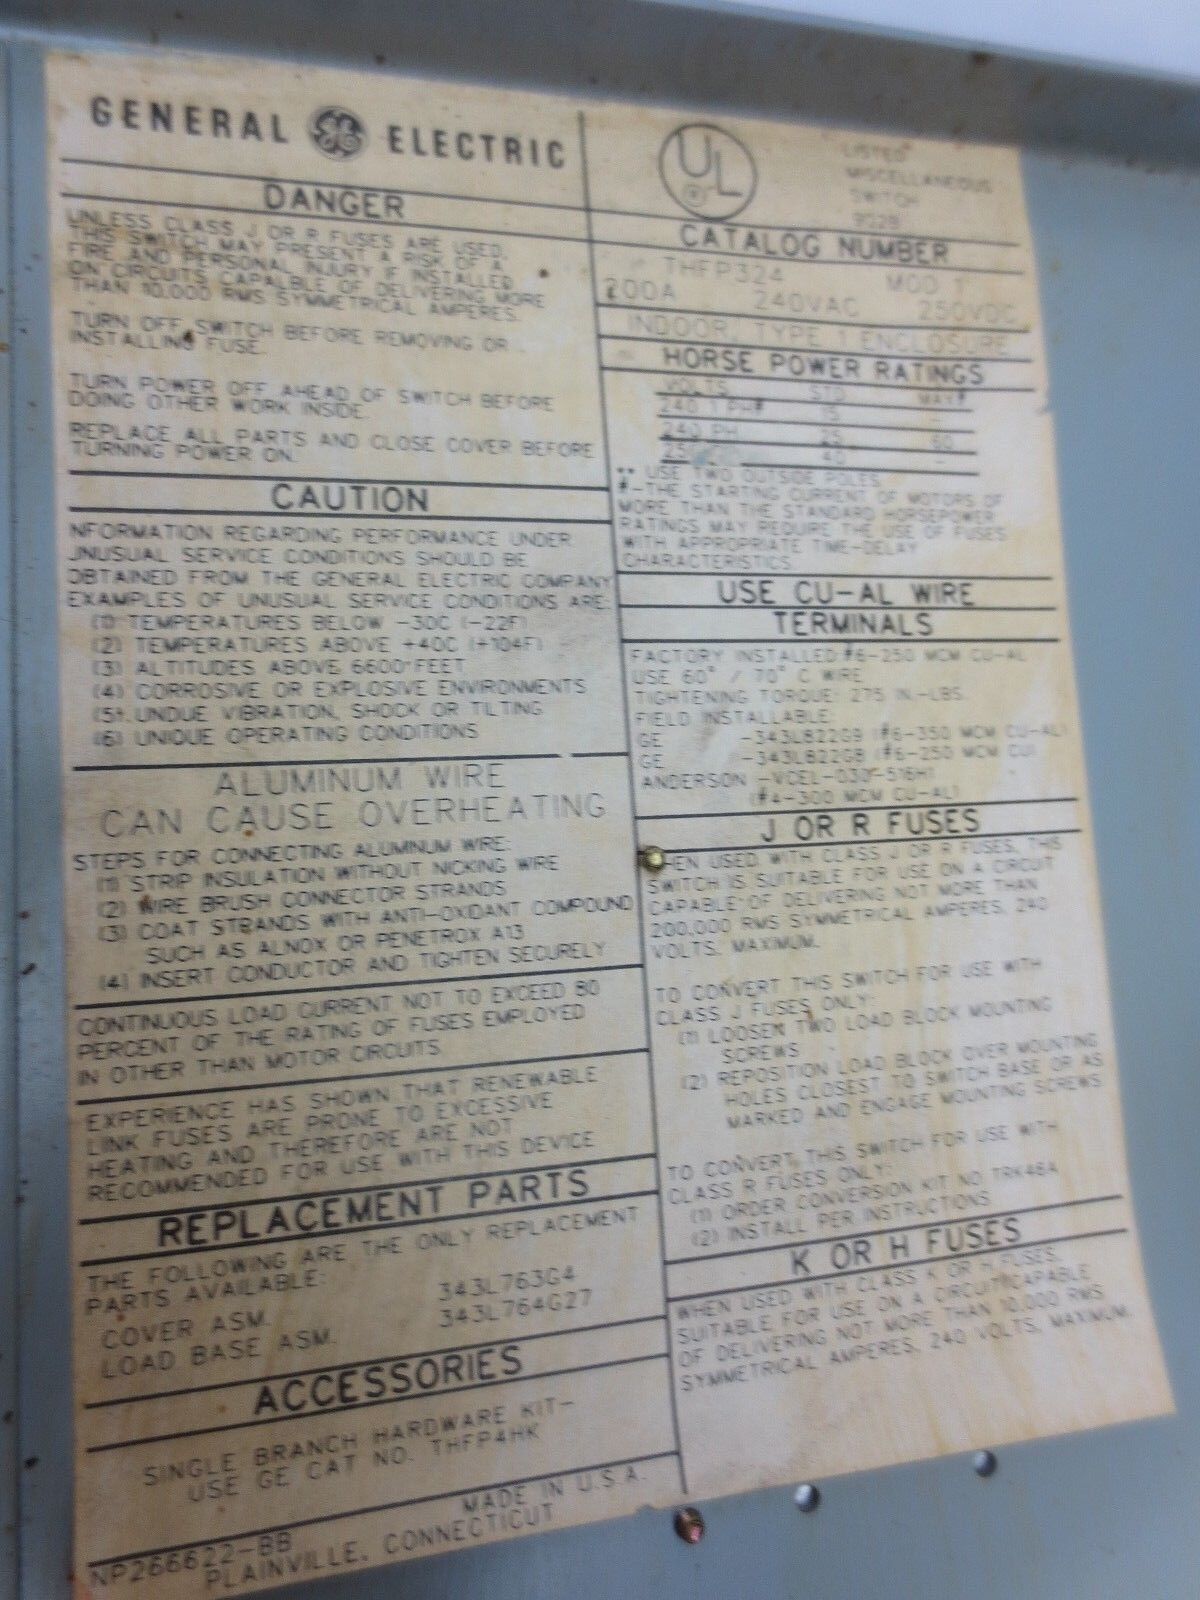 GENERAL GE ELECTRIC
DANGER
UNLESS CLASS J OR R FUSES ARE USED,
THIS SWITCH MAY PRESENT A RISK OF A
FIRE AND PERSONAL INJURY IF INSTALLED
ON CIRCUITS CAPALBLE OF DELIVERING MORE
THAN 10,000 RMS SYMMETRICAL AMPERES.
TURN OFF SWITCH BEFORE REMOVING OR
INSTALLING FUSE.
TURN POWER OFF AHEAD OF SWITCH BEFORE
DOING OTHER WORK INSIDE.
REPLACE ALL PARTS AND CLOSE COVER BEFORE
TURNING POWER ON.
CAUTION
NFORMATION REGARDING PERFORMANCE UNDER
UNUSUAL SERVICE CONDITIONS SHOULD BE
OBTAINED FROM THE GENERAL ELECTRIC COMPANY
EXAMPLES OF UNUSUAL SERVICE CONDITIONS ARE:
(1) TEMPERATURES BELOW -30C (-22F)
(2) TEMPERATURES ABOVE +40C (+104F)
(3) ALTITUDES ABOVE 6600 FEET
(4) CORROSIVE OR EXPLOSIVE ENVIRONMENTS
(5) UNDUE VIBRATION, SHOCK OR TILTING
(6) UNIQUE OPERATING CONDITIONS
ALUMINUM WIRE
CAN CAUSE OVERHEATING
STEPS FOR CONNECTING ALUMINUM WIRE:
(1) STRIP INSULATION WITHOUT NICKING WIRE
(2) WIRE BRUSH CONNECTOR STRANDS
(3) COAT STRANDS WITH ANTI-OXIDANT COMPOUND
SUCH AS ALNOX OR PENETROX A13
(4) INSERT CONDUCTOR AND TIGHTEN SECURELY
CONTINUOUS LOAD CURRENT NOT TO EXCEED 80
PERCENT OF THE RATING OF FUSES EMPLOYED
IN OTHER THAN MOTOR CIRCUITS
EXPERIENCE HAS SHOWN THAT RENEWABLE
LINK FUSES ARE PRONE TO EXCESSIVE
HEATING AND THEREFORE ARE NOT
RECOMMENDED FOR USE WITH THIS DEVICE
REPLACEMENT PARTS
THE FOLLOWING ARE THE ONLY REPLACEMENT
PARTS AVAILABLE:
COVER ASM. 343L763G4
LOAD BASE ASM. 343L764G27
ACCESSORIES
SINGLE BRANCH HARDWARE KIT-
USE GE CAT NO. THFP4HK
MADE IN U.S.A.
NP266622-BB
PLAINVILLE, CONNECTICUT
UL ®
LISTED
MISCELLANEOUS
SWITCH
CATALOG NUMBER
THFP324 MOD 1
200A 240VAC 250VDC
INDOOR, TYPE 1 ENCLOSURE
HORSE POWER RATINGS
VOLTS STD MAX#
240 1 PH 15 -
240 PH 25 60
40 -
** USE TWO OUTSIDE POLES.
#-THE STARTING CURRENT OF MOTORS OF
MORE THAN THE STANDARD HORSEPOWER
RATINGS MAY REQUIRE THE USE OF FUSES
WITH APPROPRIATE TIME-DELAY
CHARACTERISTICS
USE CU-AL WIRE
TERMINALS
FACTORY INSTALLED #6-250 MCM CU-AL
USE 60° / 70° C WIRE
TIGHTENING TORQUE: 275 IN.-LBS.
FIELD INSTALLABLE:
GE -343L822G9 (#6-350 MCM CU-AL)
GE -343L822G8 (#6-250 MCM CU)
ANDERSON -VCEL-030-516H1
(#4-300 MCM CU-AL)
J OR R FUSES
HEN USED WITH CLASS J OR R FUSES, THIS
SWITCH IS SUITABLE FOR USE ON A CIRCUIT
CAPABLE OF DELIVERING NOT MORE THAN
200,000 RMS SYMMETRICAL AMPERES, 240
VOLTS, MAXIMUM.
TO CONVERT THIS SWITCH FOR USE WITH
CLASS J FUSES ONLY:
(1) LOOSEN TWO LOAD BLOCK MOUNTING
SCREWS
(2) REPOSITION LOAD BLOCK OVER MOUNTING
HOLES CLOSEST TO SWITCH BASE OR AS
MARKED AND ENGAGE MOUNTING SCREWS
TO CONVERT THIS SWITCH FOR USE WITH
CLASS R FUSES ONLY:
(1) ORDER CONVERSION KIT NO TRK46A
(2) INSTALL PER INSTRUCTIONS
K OR H FUSES
WHEN USED WITH CLASS K OR H FUSES,
SUITABLE FOR USE ON A CIRCUIT CAPABLE
OF DELIVERING NOT MORE THAN 10,000 RMS
SYMMETRICAL AMPERES, 240 VOLTS, MAXIMUM.